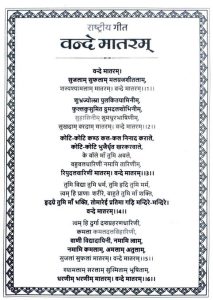 राष्ट्रीय गीत
वन्दे मातरम्
वन्दे मातरम्।
सुजलाम् सुफलाम् मलयजशीतलाम्,
शस्यश्यामलाम् मातरम्। वन्दे मातरम्।।1।।
शुभ्रज्योत्स्ना पुलकितयामिनीम्,
फुल्लकुसुमित द्रुमदलशोभिनीम्,
सुहासिनीम् सुमधुरभाषिणीम्,
सुखदाम् वरदाम् मातरम्। वन्दे मातरम्।।2।।
कोटि-कोटि कण्ठ कल-कल निनाद कराले,
कोटि-कोटि भुजैर्धृत खरकरवाले,
के बॉले माँ तुमि अबले,
बहुबलधारिणीं नमामि तारिणीम्,
रिपुदलवारिणीं मातरम्। वन्दे मातरम्।।3।।
तुमि विद्या तुमि धर्म, तुमि हृदि तुमि मर्म,
त्वम् हि प्राणाः शरीरे, बाहुते तुमि माँ शक्ति,
हृदये तुमि माँ भक्ति, तोमारेई प्रतिमा गढ़ि मन्दिरे-मन्दिरे।
वन्दे मातरम् ।।4।।
त्वम् हि दुर्गा दशप्रहरणधारिणी,
कमला कमलदलविहारिणी,
वाणी विद्यादायिनी, नमामि त्वाम्,
नमामि कमलाम्, अमलाम् अतुलाम्,
सुजलां सुफलां मातरम्। वन्दे मातरम्।।5।।
श्यामलाम् सरलाम् सुस्मिताम् भूषिताम्,
धरणीम् भरणीम् मातरम्। वन्दे मातरम्।।6।।